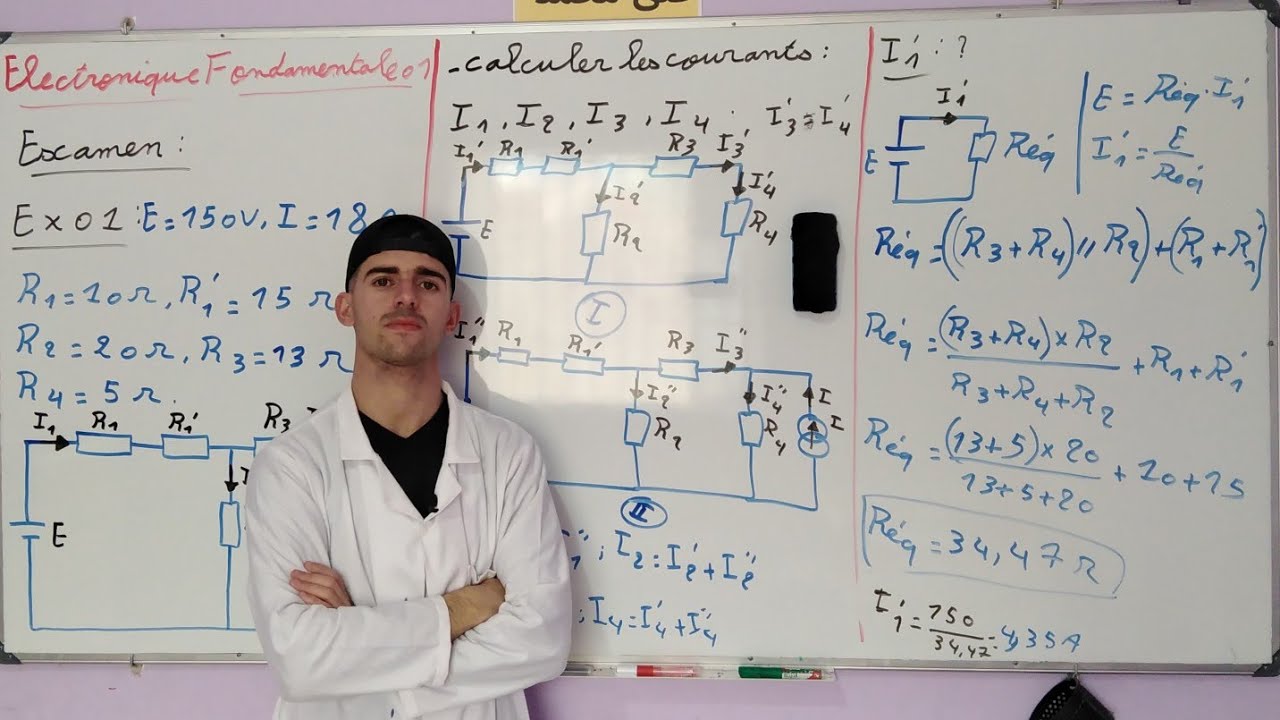 Electronique Fondamentale 01
Escamen :
Ex 01 : E = 150V, I = 18
R1 = 10 Ω, R1' = 15 Ω
R2 = 20 Ω, R3 = 13 Ω
R4 = 5 Ω.
I1 R1 R1' R3
E
- calculer les courants :
I1, I2, I3, I4. I3' = I4'
I1' R1 R1' R3 I3'
I2' I4'
E R2 R4
I
I1'' R1 R1' R3 I3''
I2'' I4'' I
R2 R4 I
II
1''; I2 = I2' + I2''
; I4 = I4' + I4''
I1' : ?
I1'
E Réq
E = Réq · I1'
I1' = E / Réq
Réq = ((R3 + R4) // R2) + (R1 + R1')
Réq = (R3 + R4) × R2 / R3 + R4 + R2 + R1 + R1'
Réq = (13 + 5) × 20 / 13 + 5 + 20 + 10 + 15
Réq = 34,47 Ω
I1' = 150 / 34,47 = 4,35A